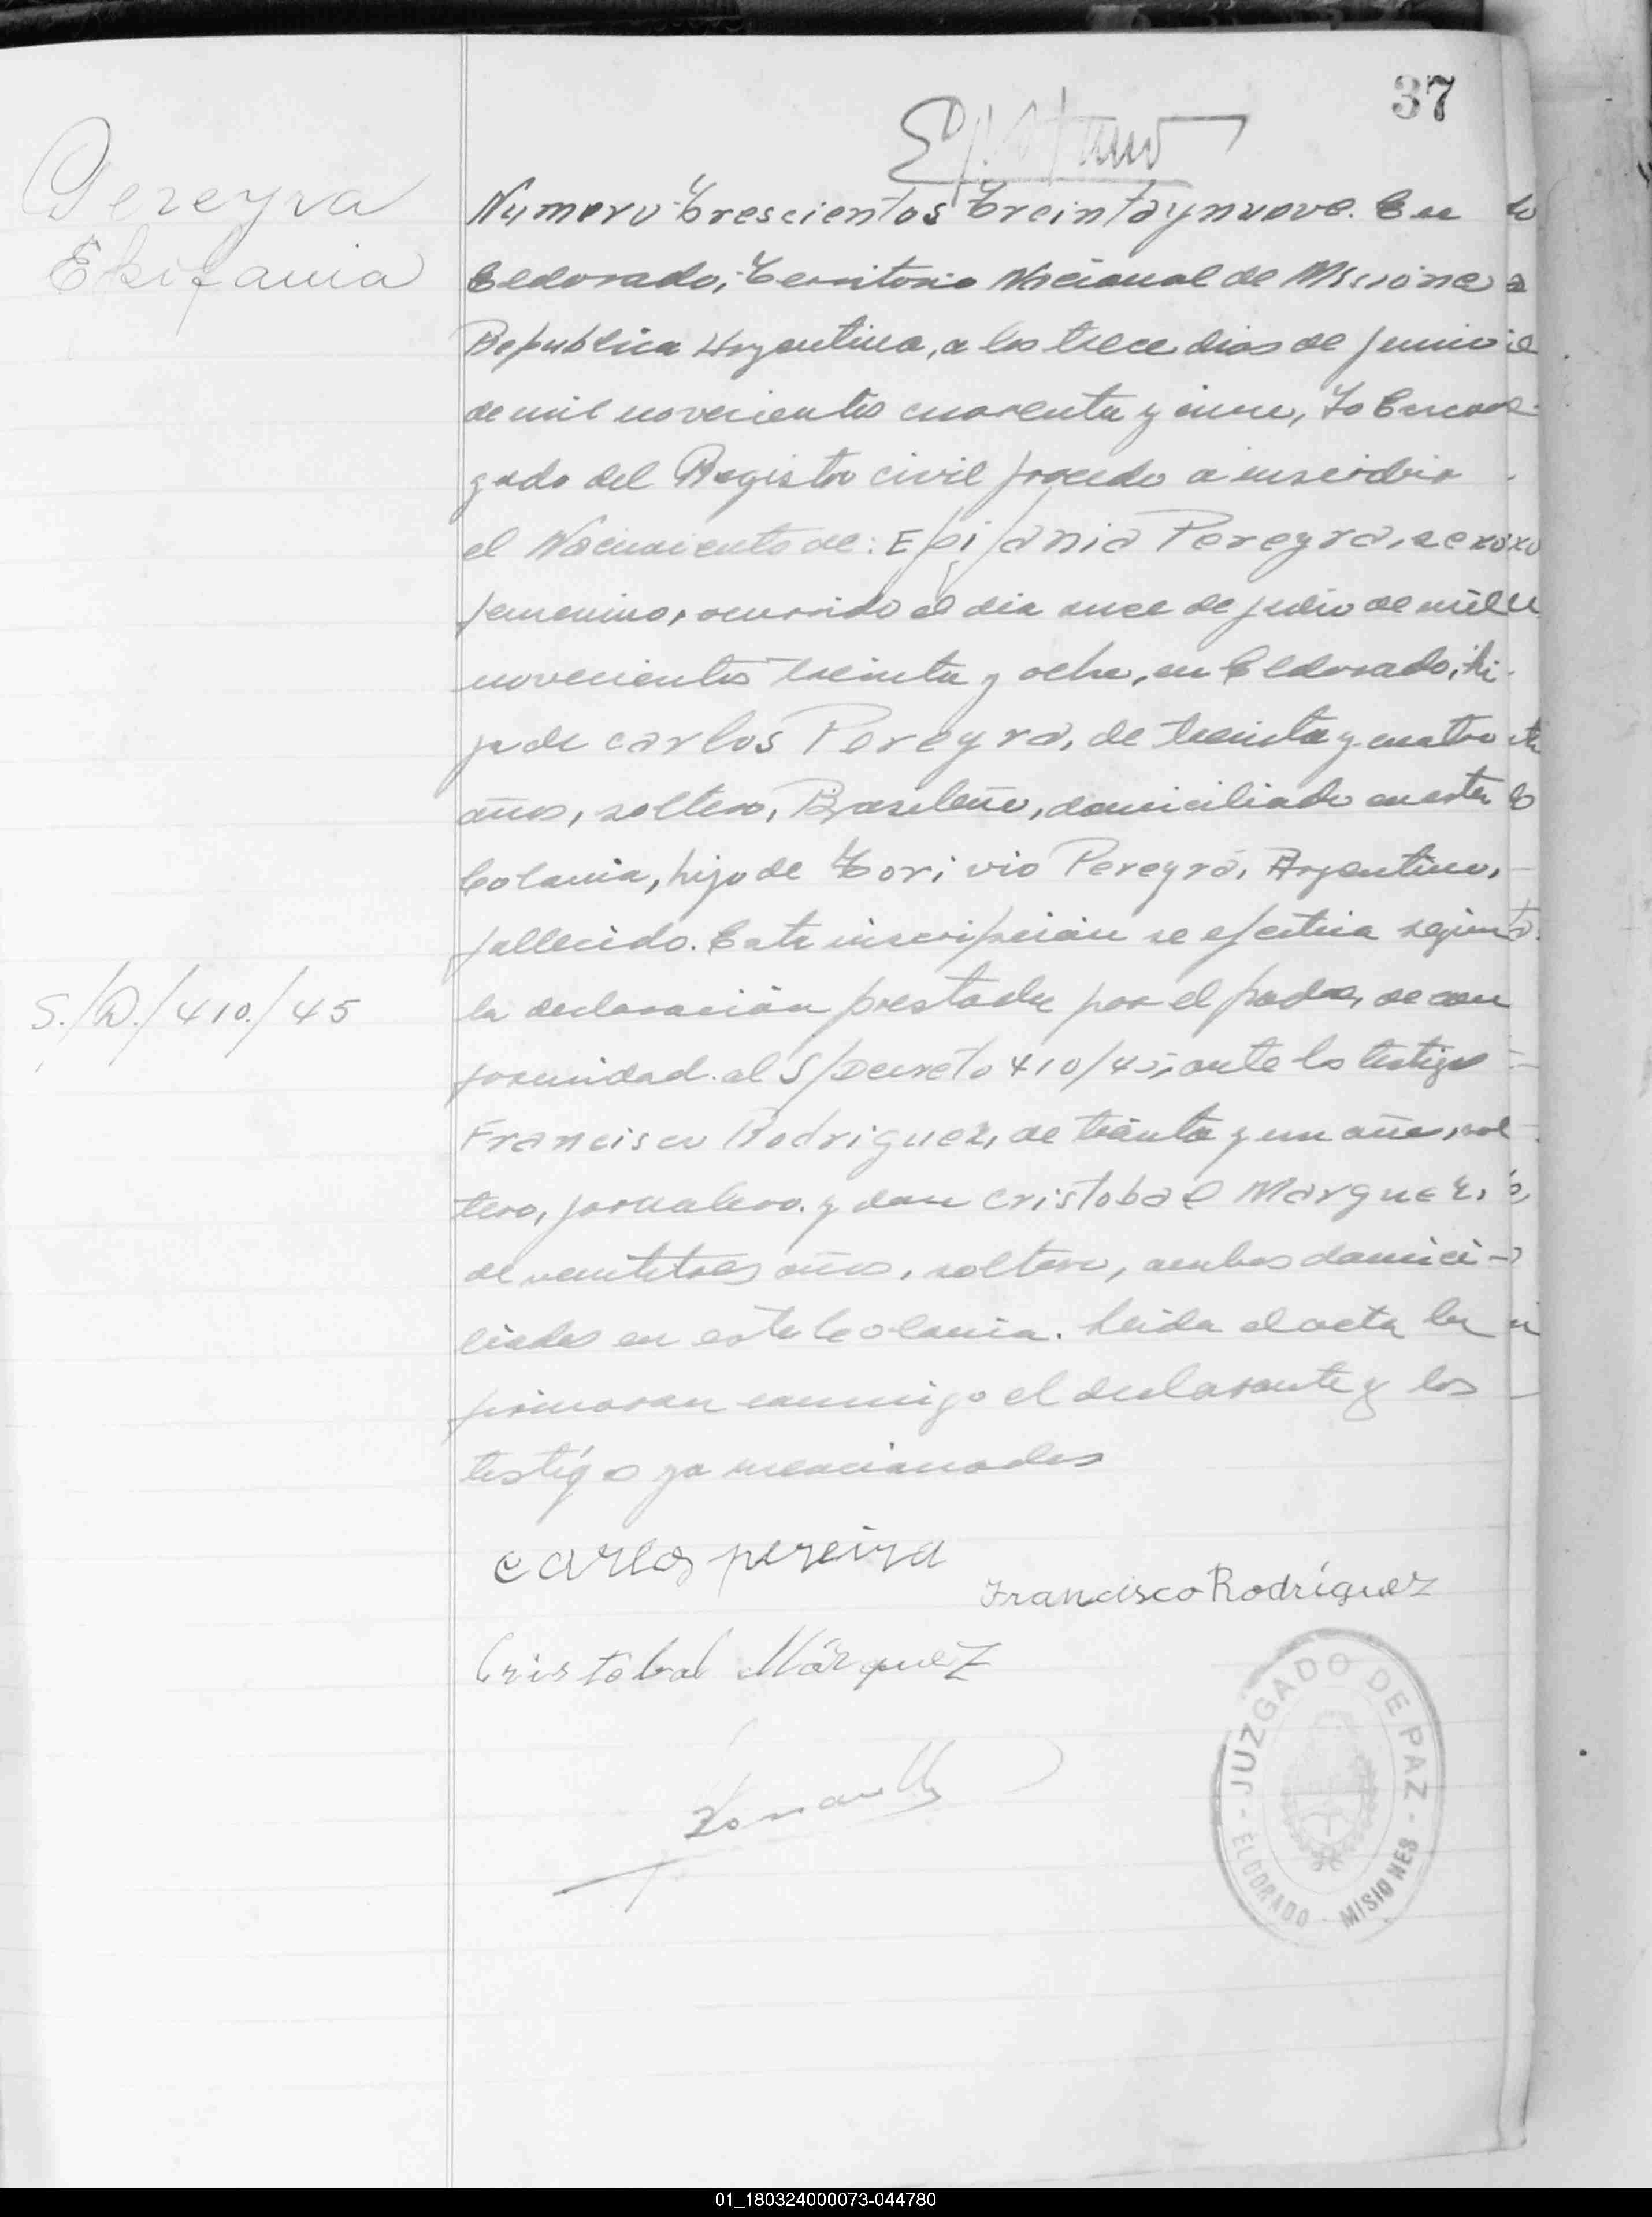 37
Pereyra
Epifania
Numero Trescientos Treinta y nueve. En
Eldorado, Territorio Nacional de Misiones
Republica Argentina, a los trece dias de junio
de mil novecientos cuarenta y cinco, Yo Encar
gado del Registro civil procedo a inscribir
el Nacimiento de: Epifania Pereyra, sexo
femenino, ocurrido el dia once de julio de mil
novecientos treinta y ocho, en Eldorado, hi
ja de Carlos Pereyra, de treinta y cuatro
años, soltero, Brasileño, domiciliado en esta
Colonia, hijo de Torivio Pereyra, Argentino,
fallecido. Esta inscripción se efectua según
la declaración prestada por el padre, de con
formidad al S/Decreto 410/45, ante los testigos
Francisco Rodriguez, de treinta y un años, sol
tero, jornalero. y don Cristobal Marquez,
de veintitres años, soltero, ambos domici-
liados en esta Colonia. Leida el acta la
firmaran conmigo el declarante y los
testigos ya mencionados
S./D./410./45
Carlos pereira
Francisco Rodríguez
Cristobal Márquez
JUZGADO DE PAZ
- ELDORADO - MISIONES -
01_180324000073-044780